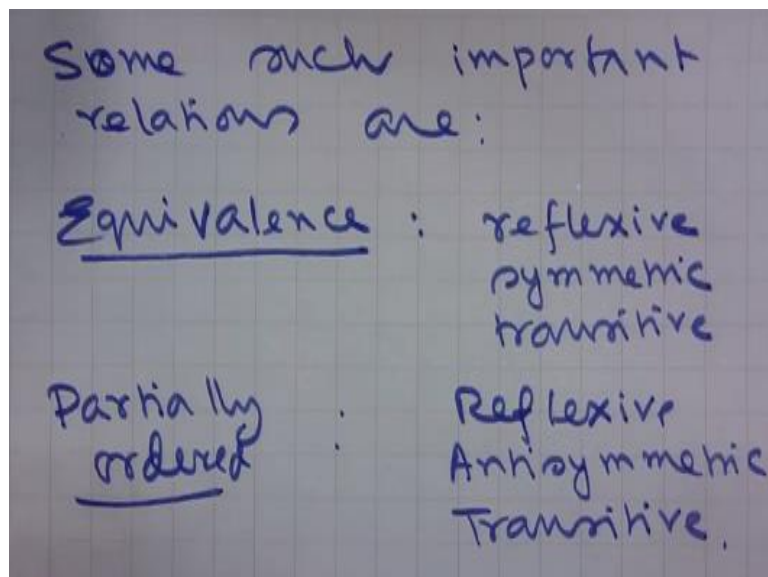 Some such important
relations are:
Equivalence : reflexive
symmetric
transitive
Partially : Reflexive
ordered Antisymmetric
Transitive.